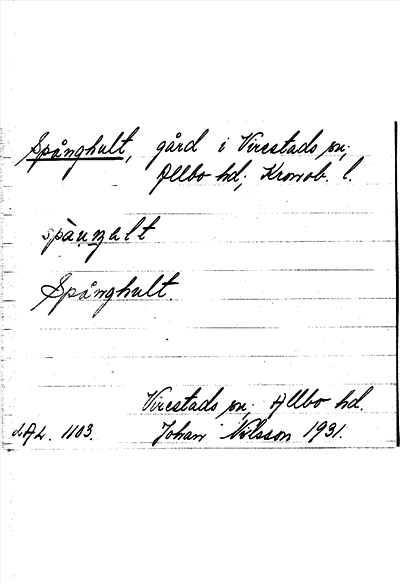 Spånghult, gård i Virestads sn;
Allbo hd; Kronob. l.
spàuŋalt
Spånghult.
Virestads sn; Allbo hd.
LAL. 1103. Johan Nilsson 1931.